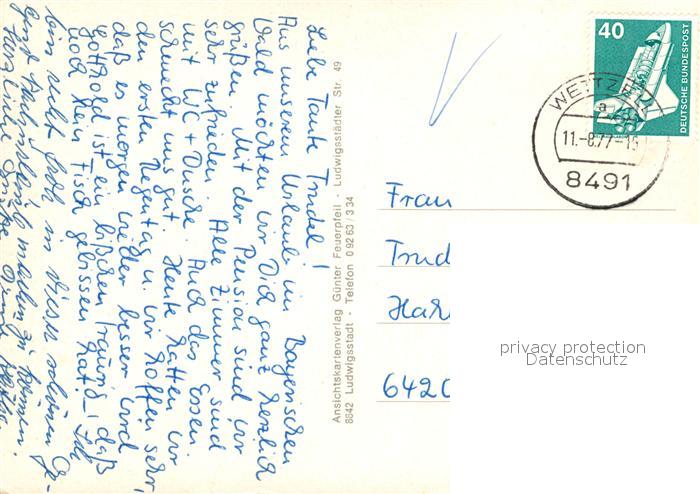 Liebe Tante Trudel!
Aus unserem Urlaub im Bayerischen
Wald möchten wir Dich ganz herzlich
grüßen. Mit der Pension sind wir
sehr zufrieden. Alle Zimmer sind
mit WC + Dusche. Auch das Essen
schmeckt so gut. Heute hatten wir
den ersten Regentag u. wir hoffen sehr,
daß es morgen wieder besser wird.
Gotthold ist ein bißchen traurig, daß
noch kein Fisch gebissen hat. Ich
bin recht froh in dieser schönen Ge-
gend machen zu können.
Herzliche Grüße
Ansichtskartenverlag Günter Feuerpfeil - Ludwigsstädter Str. 49
8642 Ludwigsstadt - Telefon 0 92 63 / 3 34
40
DEUTSCHE BUNDESPOST
WETTZELL
a
11.-8.77-15
8491
Frau
Trud
Har
6420
privacy protection
Datenschutz